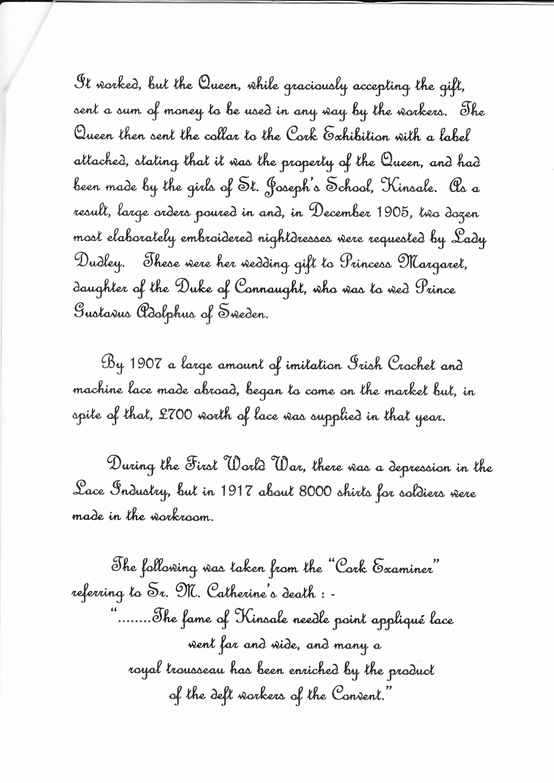 It worked, but the Queen, while graciously accepting the gift,
sent a sum of money to be used in any way by the workers. The
Queen then sent the collar to the Cork Exhibition with a label
attached, stating that it was the property of the Queen, and had
been made by the girls of St. Joseph's School, Kinsale. As a
result, large orders poured in and, in December 1905, two dozen
most elaborately embroidered nightdresses were requested by Lady
Dudley. These were her wedding gift to Princess Margaret,
daughter of the Duke of Connaught, who was to wed Prince
Gustavus Adolphus of Sweden.
By 1907 a large amount of imitation Irish Crochet and
machine lace made abroad, began to come on the market but, in
spite of that, £700 worth of lace was supplied in that year.
During the First World War, there was a depression in the
Lace Industry, but in 1917 about 8000 shirts for soldiers were
made in the workroom.
The following was taken from the "Cork Examiner"
referring to Sr. M. Catherine's death : -
"........The fame of Kinsale needle point appliqué lace
went far and wide, and many a
royal trousseau has been enriched by the product
of the deft workers of the Convent."